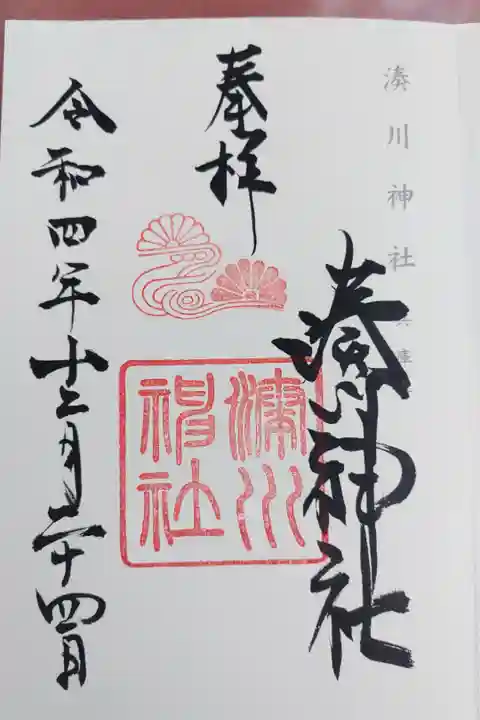 湊川神社
兵庫
湊川神社
奉拝
湊川
神社
令和四年十二月二十四日